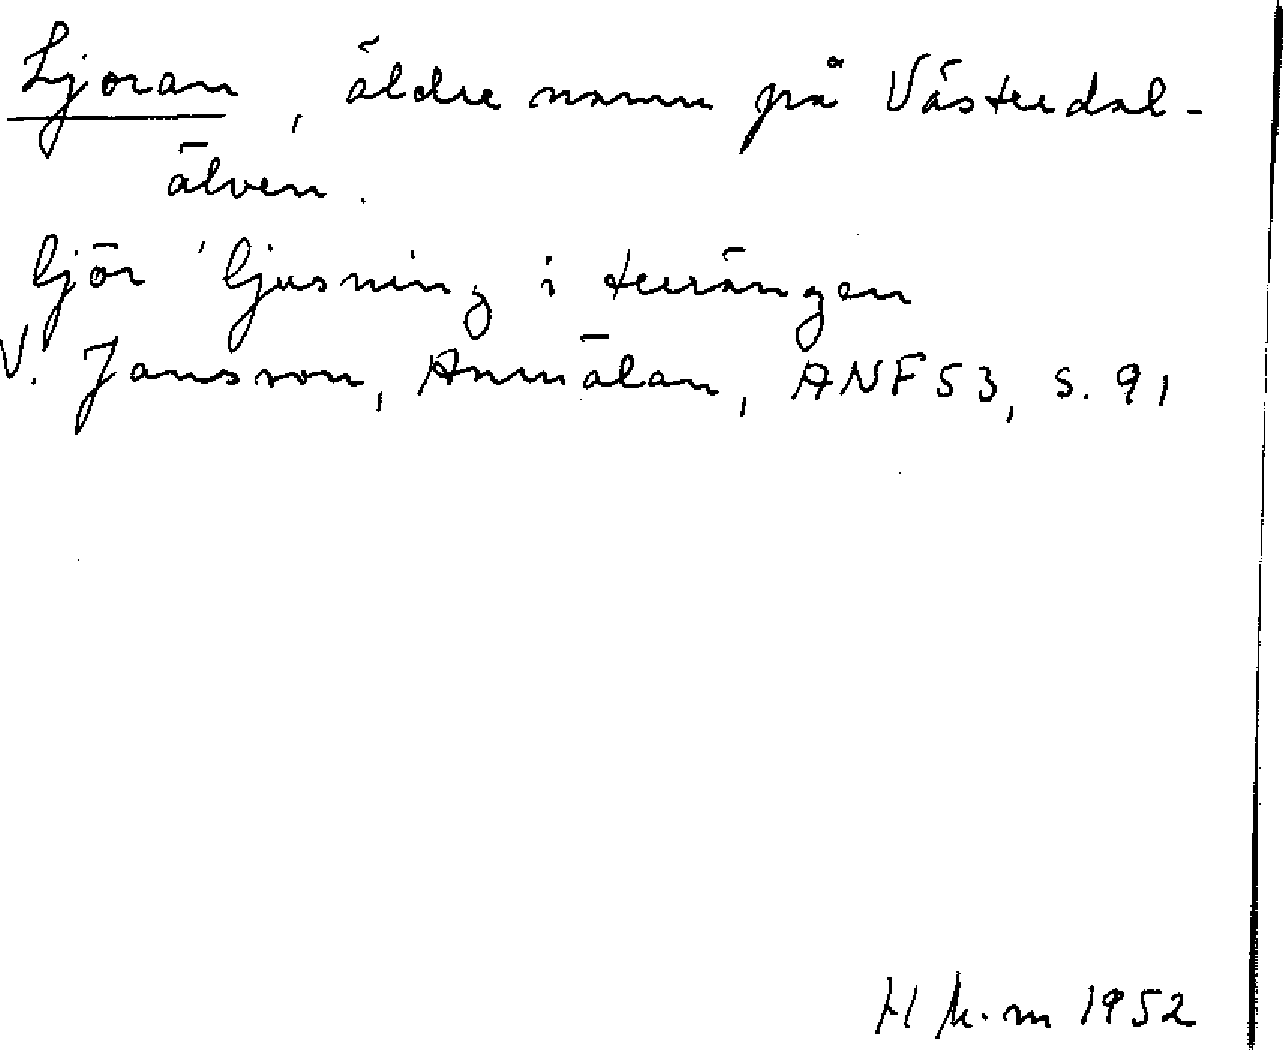 Ljoran, äldre namn på Västerdal-
älven.
ljör 'ljusning i terrängen
V. Jansson, Anmälan, ANF 53, s. 91
1952